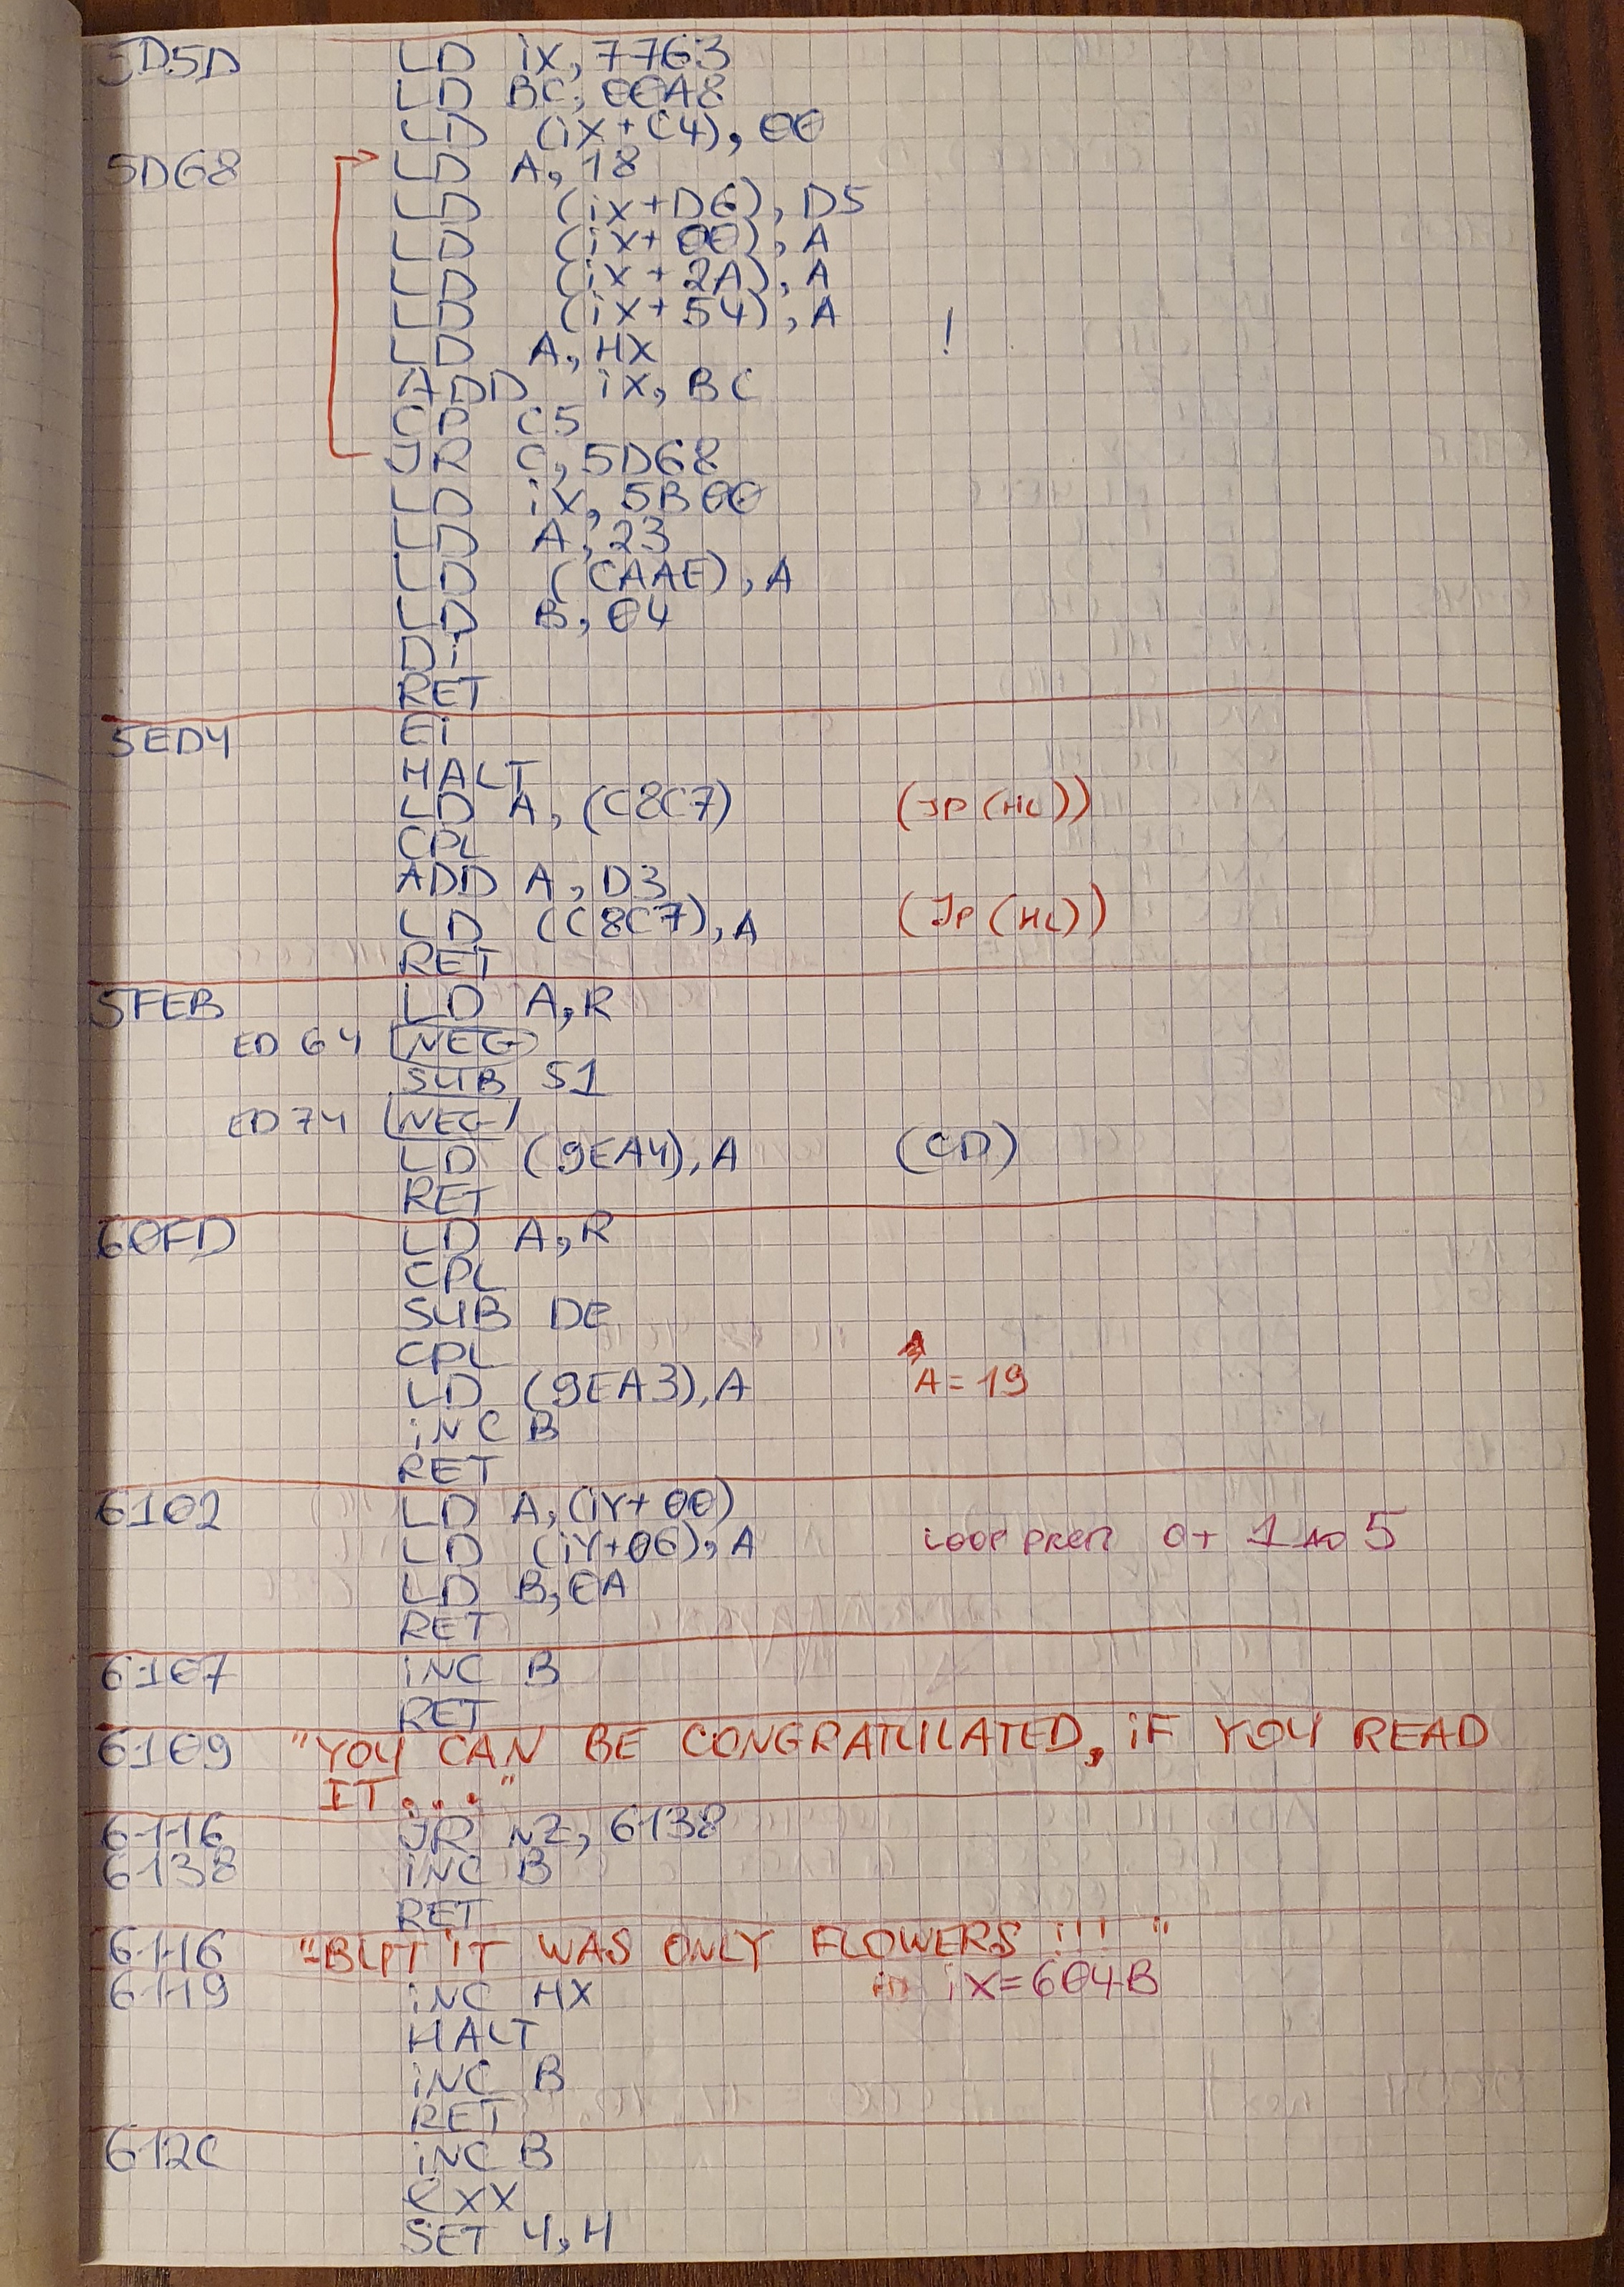 5D5D LD iX, 7763
LD BC, 00A8
LD (iX+C4), 00
5D68 LD A, 18
LD (iX+D6), D5
LD (iX+00), A
LD (iX+2A), A
LD (iX+54), A !
LD A, HX
ADD iX, BC
CP C5
JR C, 5D68
LD iX, 5B00
LD A, 23
LD (CAAE), A
LD B, 04
Di
RET
5ED4 Ei
HALT
LD A, (C8C7) (JP (HL))
CPL
ADD A, D3
LD (C8C7), A (JP (HL))
RET
5FEB LD A, R
ED 64 NEG
SUB 51
ED 74 NEG
LD (9EA4), A (CD)
RET
60FD LD A, R
CPL
SUB DE
CPL
LD (9EA3), A A=19
iNC B
RET
6102 LD A, (iY+00)
LD (iY+06), A LOOP 1 5
LD B, 0A
RET
6107 iNC B
RET
6109 "YOU CAN BE CONGRATULATED, iF YOU READ
IT..."
6116 JR NZ, 6138
6138 iNC B
RET
6116 "BUT iT WAS ONLY FLOWERS !!! "
6119 iNC HX iX=604B
HALT
iNC B
RET
612C iNC B
EXX
SET 4, H